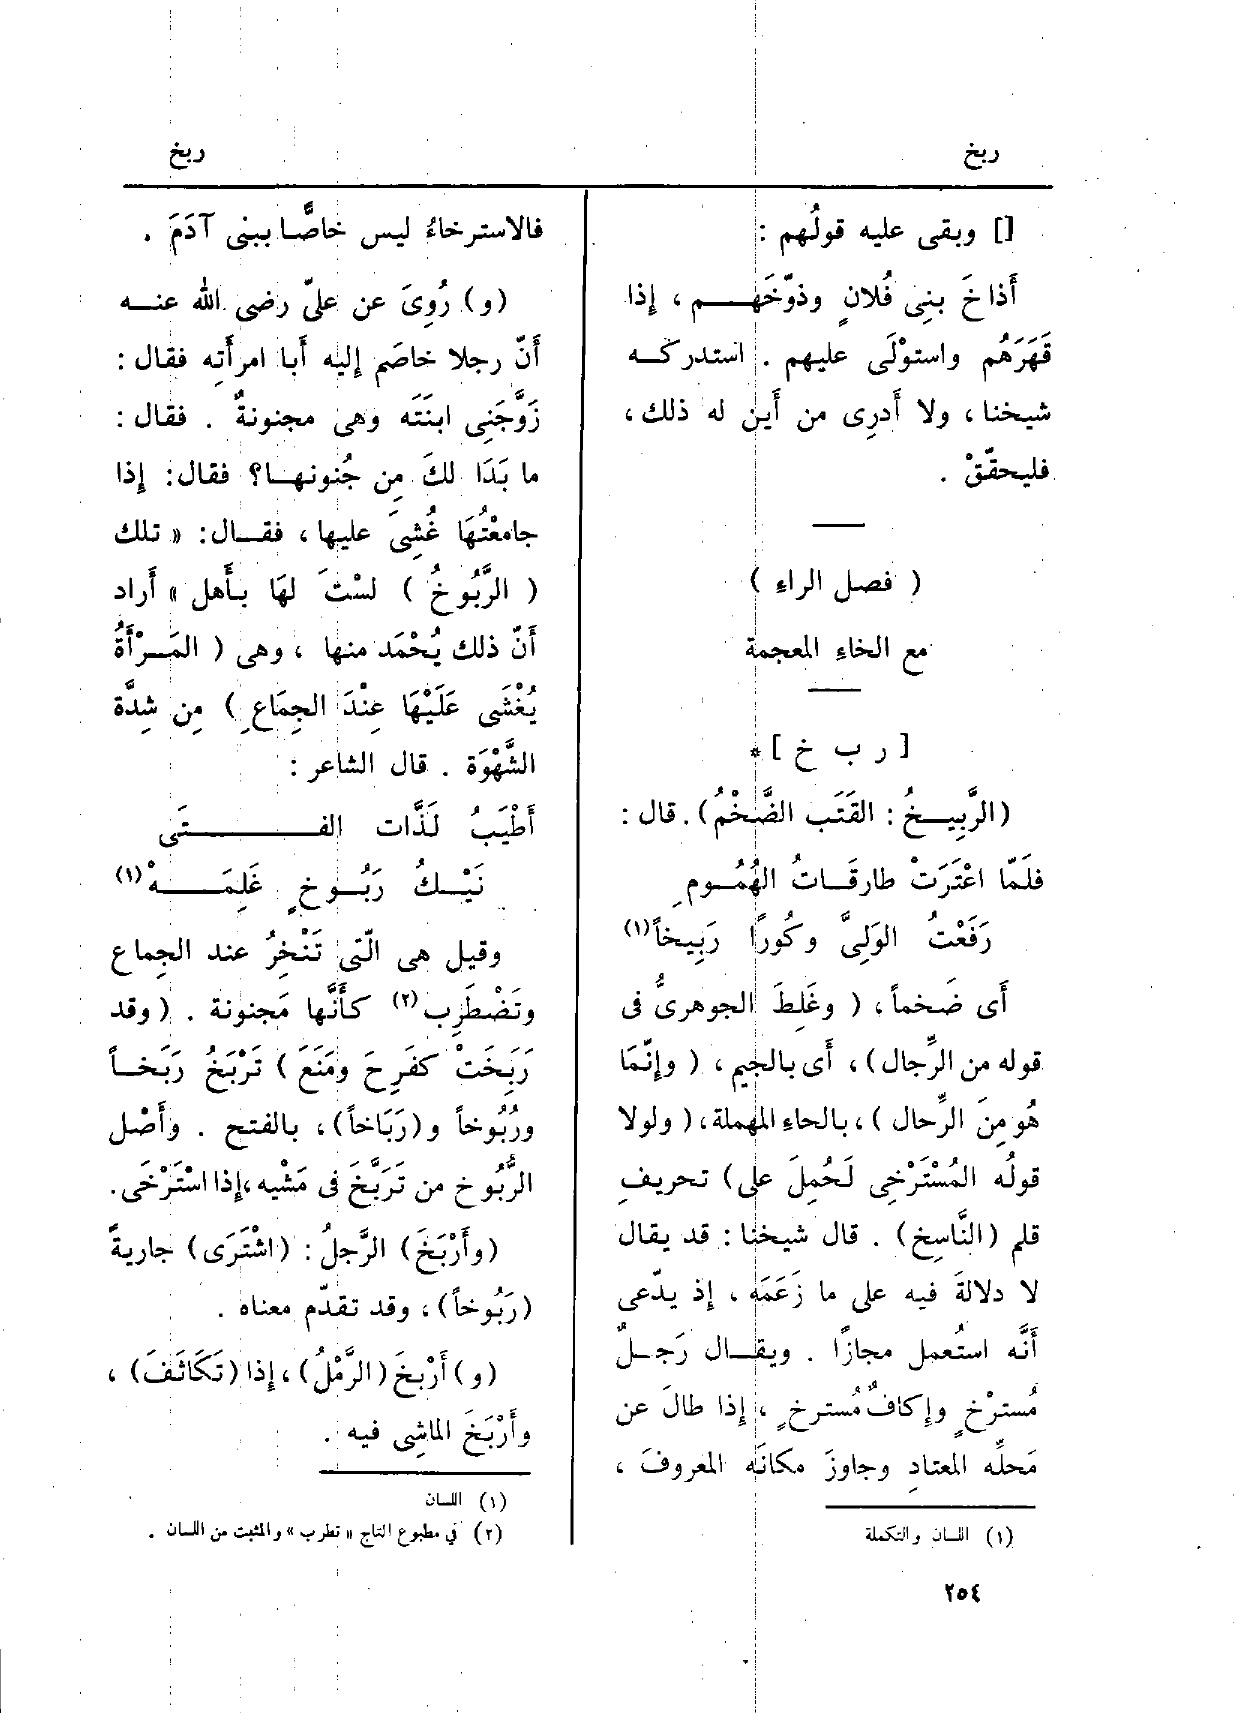 ربخ
ربخ
[] وبقى عليه قولُهم :
أَذاخَ بنِى فُلانٍ وذوّخَهـــم ، إِذا
قَهَرَهُم واستوْلَى عليهم . استدركـه
شيخنا ، ولا أَدرِى من أَين له ذلك ،
فليحقّقْ .
( فصل الراء )
مع الخاء المعجمة
[ ر ب خ ] *
(الرَّبِيـخُ : القَتَب الضَّخْمُ) . قال :
فلَمّا اعْتَرَتْ طارقَـاتُ الهُمُـومِ
رَفَعْتُ الوَلِىَّ وكُورًا رَبِيخاً (١)
أَى ضَخماً ، ( وغَلِطَ الجوهرىُّ فى
قوله من الرِّجال ) ، أَى بالجيم ، ( وإِنّمَا
هُو مِنَ الرِّحال ) ، بالحاءِ المهملة ، ( ولولا
قولُه المُسْتَرْخِى لَحُمِلَ على) تحريفِ
قلم (النَّاسِخ) . قال شيخنا : قد يقال
لا دلالةَ فيه على ما زَعَمَه ، إِذ يدّعى
أَنَّه استُعمل مجازًا . ويقـال رَجـلٌ
مُسترْخٍ وإِكافٌ مُسترخٍ ، إِذا طالَ عن
مَحلِّه المعتادِ وجاوزَ مكانَه المعروفَ ،
(١) اللسان والتكملة
٢٥٤
فالاسترخاءُ ليس خاصًّا ببنى آدَمَ .
(و) رُوِىَ عن علىّ رضى الله عنـه
أَنّ رجلا خاصَم إِليه أَبا امرأَتِه فقال :
زَوَّجَنِى ابنَتَه وهى مجنونةٌ . فقال :
ما بَدَا لكَ مِن جُنونهـا؟ فقال: إِذا
جامعْتُهَا غُشِىَ عليها ، فقـال: « تلك
( الرَّبُوخُ ) لسْتَ لهَا بـأَهل » أَراد
أَنّ ذلك يُحْمَد منها ، وهى ( المَـرْأَةُ
يُغْشَى عَلَيْهَا عِنْدَ الجِمَاعِ ) مِن شدَّة
الشَّهْوَة . قال الشاعر :
أَطْيَبُ لَذَّات الفــــــتَى
نَيْـكُ رَبُـوخٍ غَلِمَـــهْ (١)
وقيل هى الّتى تَنْخِرُ عند الجِماع
وتَضْطَرِب (٢) كأَنَّها مَجنونة . ( وقد
رَبَخَتْ كفَرِحَ ومَنَعَ ) تَرْبَخُ رَبَخـاً
ورُبُوخاً و(رَبَاخاً) ، بالفتح . وأَصْل
الرَّبُوخ من تَرَبَّخَ فى مَشْيه ،إِذا اسْتَرْخَى.
(وأَرْبَخَ) الرَّجلُ : (اشْتَرَى) جاريةً
(رَبُوخاً) ، وقد تقدّم معناه .
(و) أَرْبخَ (الرَّمْلُ) ، إِذا (تَكَاثَفَ) ،
وأَرْبَخَ الماشِى فيه .
(١) اللسان
(٢) فى مطبوع التاج « تطرب » والمثبت من اللسان .